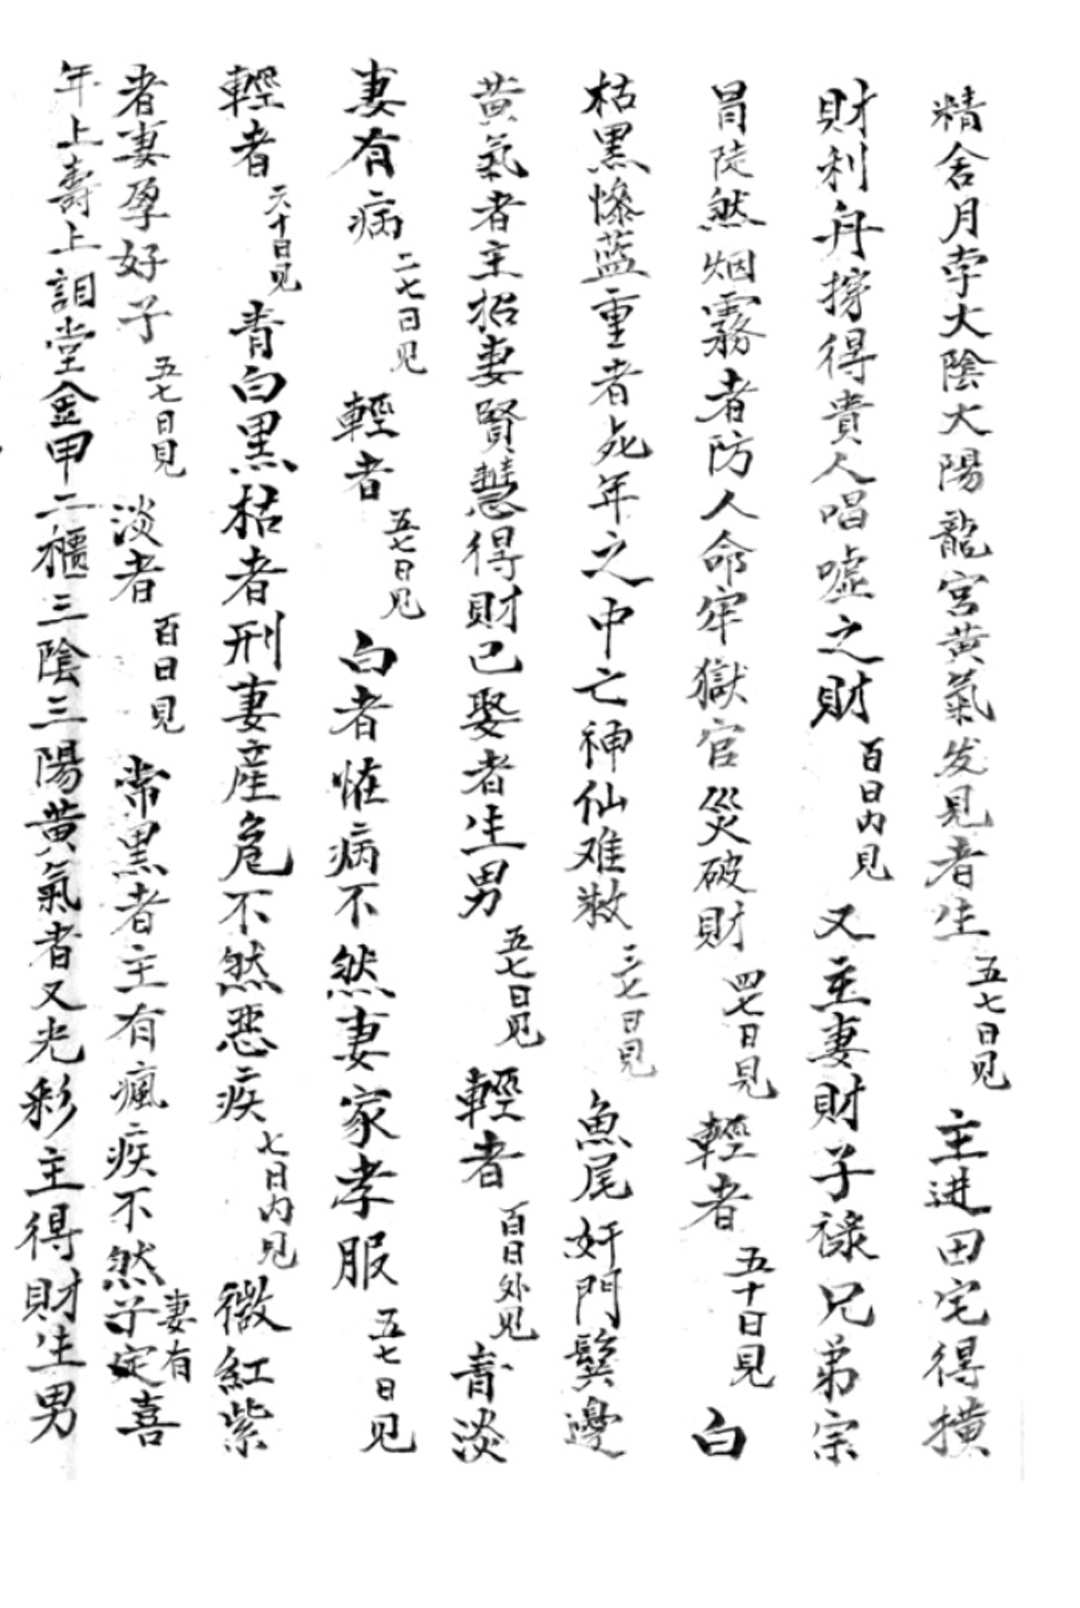 精舍月孛太陰太陽龍宮黃氣发見者生五七日见主进田宅得橫
財利舟擠得貴人唱噓之財百日內见又主妻財子祿兄弟宗
冒陡然烟霧者防人命牢獄官災破財四七日見輕者五十日見白
枯黑慘藍重者死年之中亡神仙难救三七日見魚尾奸門鬓邊
黃氣者主招妻賢慧得財已娶者生男五七日见輕者百日外见青淡
妻有病二七日见輕者五七日见白者惟病不然妻家孝服五七日见
輕者六十日见青白黑枯者刑妻產危不然惡疾七日內见微紅紫
者妻孕好子五七日見淡者百日見常黑者主有瘋疾不然子定喜妻有
年上壽上詛堂金甲二櫃三陰三陽黃氣者又光彩主得財生男